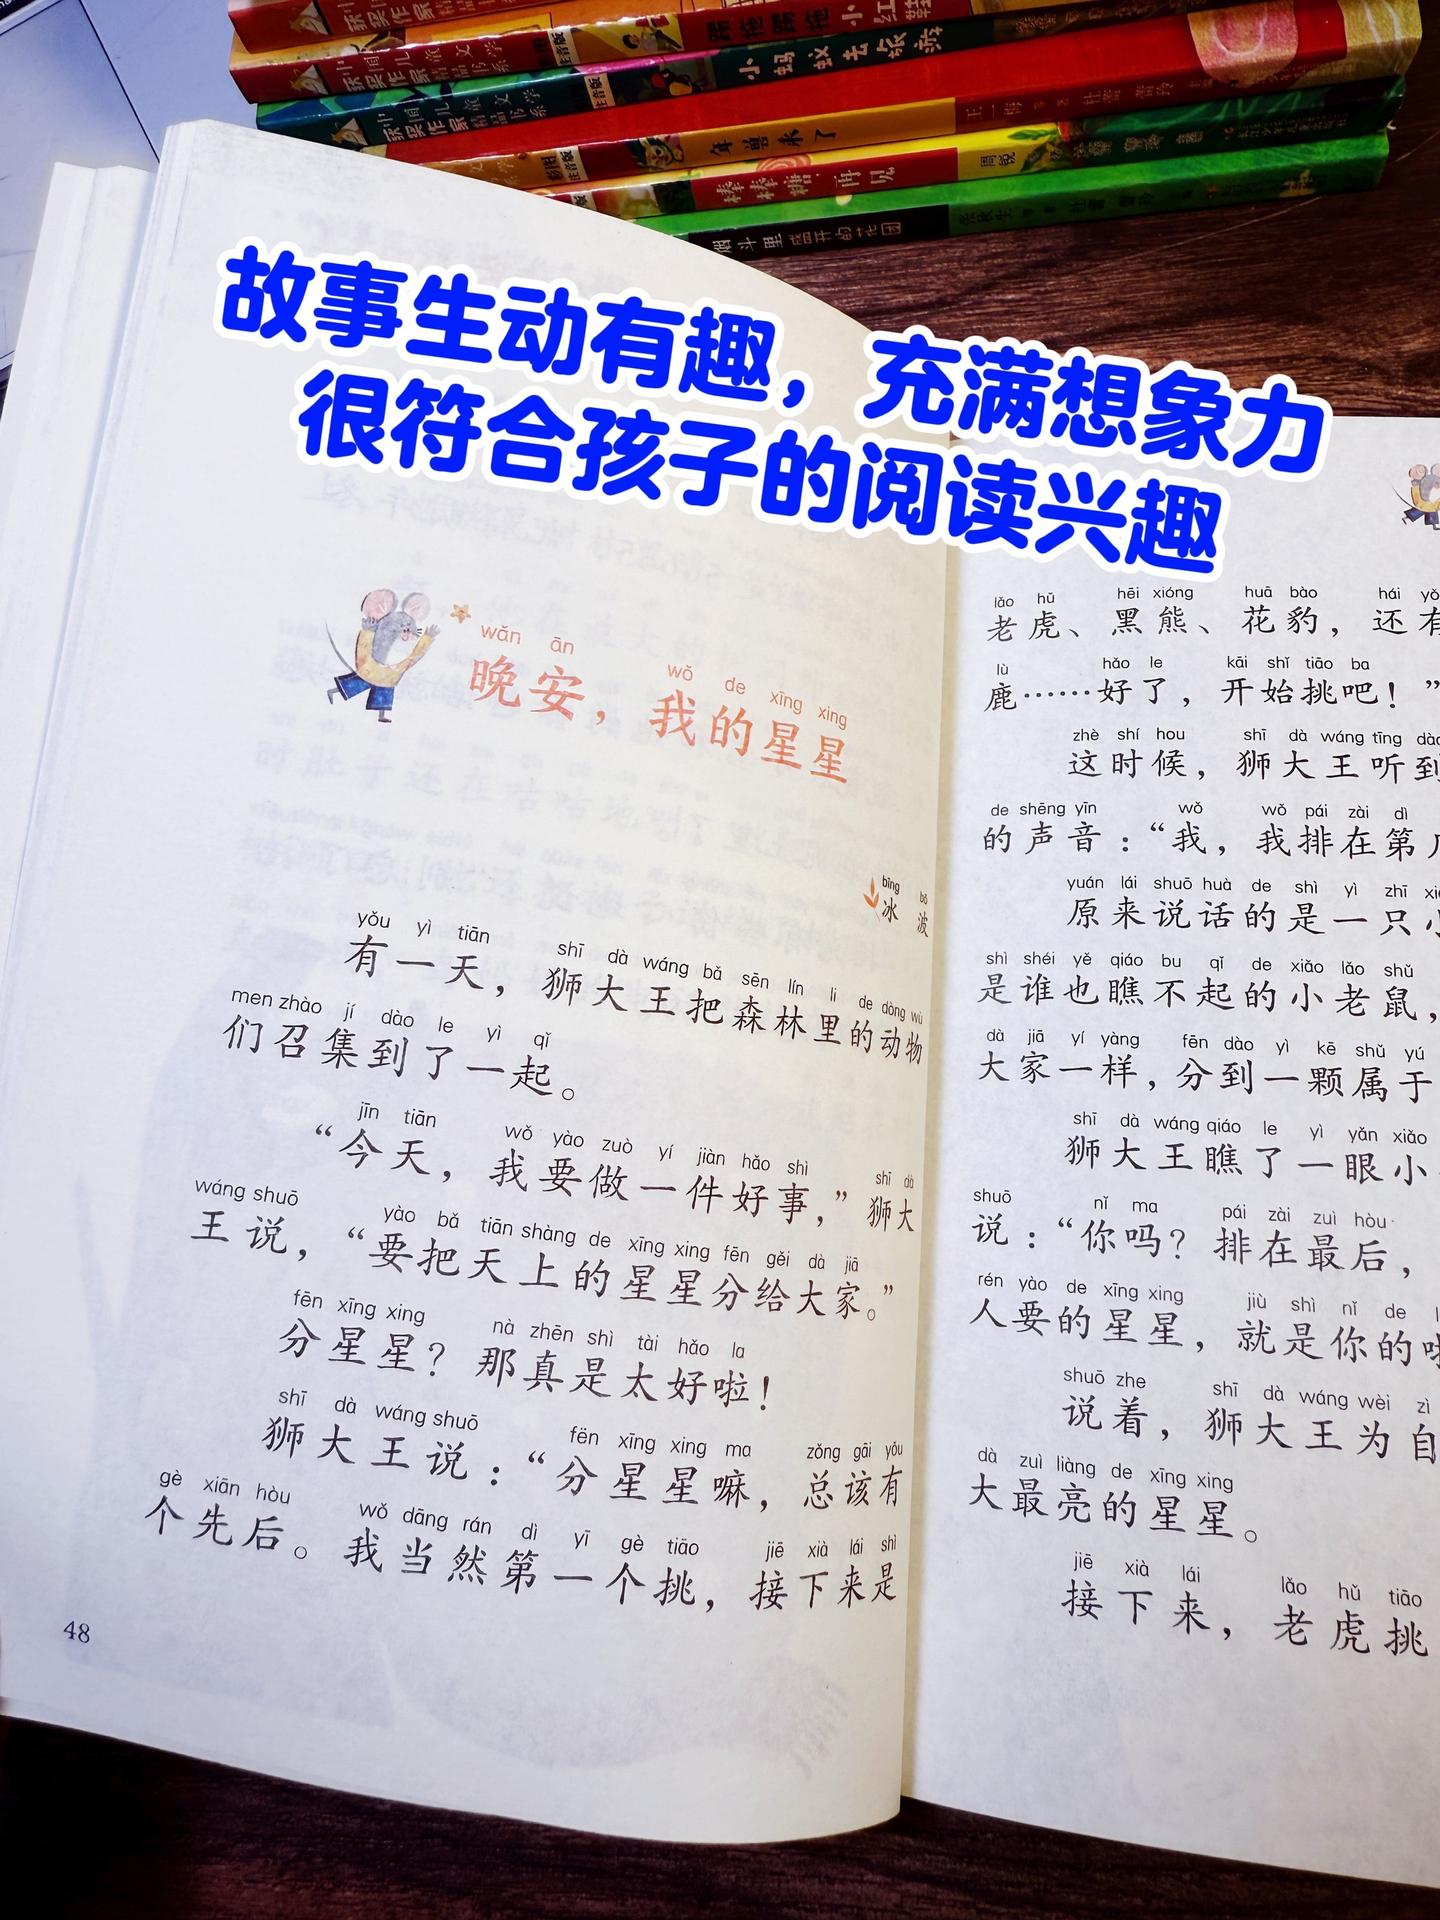 中国儿童文学
获奖作家精品书系
踢拖踢拖小红鞋
中国儿童文学
获奖作家精品书系
注音版
小蚂蚁去旅游
彩图
注音版
年兽来了
王一梅 等著
棒棒糖,再见
周锐
烟斗里盛开的花园
张秋生 等著
故事生动有趣，充满想象力
很符合孩子的阅读兴趣
wǎn ān wǒ de xīng xing
晚安，我的星星
bīng bō
冰波
yǒu yì tiān shī dà wáng bǎ sēn lín li de dòng wù
有一天，狮大王把森林里的动物
men zhào jí dào le yì qǐ
们召集到了一起。
jīn tiān wǒ yào zuò yí jiàn hǎo shì shī dà
“今天，我要做一件好事，”狮大
wáng shuō yào bǎ tiān shàng de xīng xing fēn gěi dà jiā
王说，“要把天上的星星分给大家。”
fēn xīng xing nà zhēn shì tài hǎo la
分星星？那真是太好啦！
shī dà wáng shuō fēn xīng xing ma zǒng gāi yǒu
狮大王说：“分星星嘛，总该有
gè xiān hòu wǒ dāng rán dì yī gè tiāo jiē xià lái shì
个先后。我当然第一个挑，接下来是
48
lǎo hǔ hēi xióng huā bào hái
老虎、黑熊、花豹，还有
lù hǎo le kāi shǐ tiāo ba
鹿……好了，开始挑吧！”
zhè shí hou shī dà wáng tīng
这时候，狮大王听到
de shēng yīn wǒ wǒ pái zài dì
的声音：“我，我排在第几
yuán lái shuō huà de shì yì zhī
原来说话的是一只小
shì shéi yě qiáo bu qǐ de xiǎo lǎo shǔ
是谁也瞧不起的小老鼠，
dà jiā yí yàng fēn dào yì kē shǔ yú
大家一样，分到一颗属于
shī dà wáng qiáo le yì yǎn xiǎo
狮大王瞧了一眼小
shuō nǐ ma pái zài zuì hòu
说：“你吗？排在最后，
rén yào de xīng xing jiù shì nǐ de
人要的星星，就是你的啦
shuō zhe shī dà wáng wèi zì
说着，狮大王为自
dà zuì liàng de xīng xing
大最亮的星星。
jiē xià lái lǎo hǔ tiāo
接下来，老虎挑